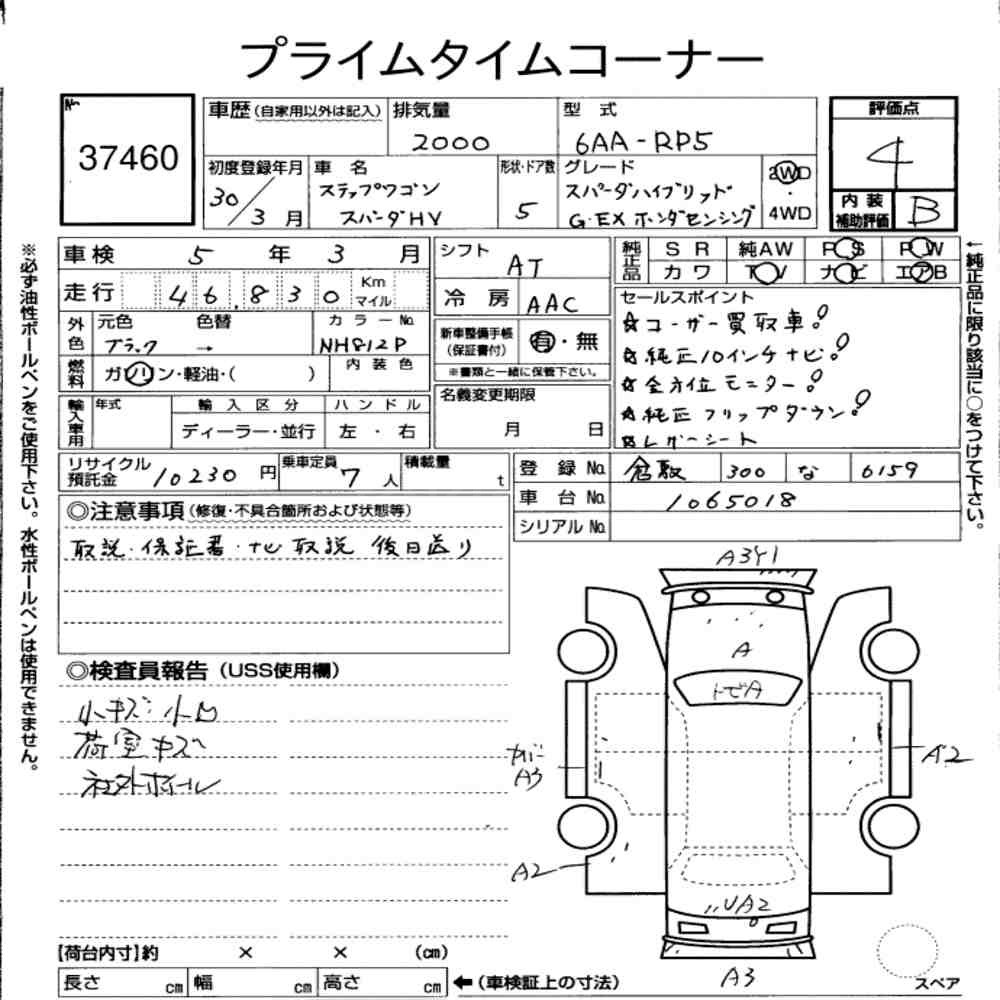 プライムタイムコーナー
No.
37460
車歴(自家用以外は記入) 排気量 2000 型式 6AA-RP5
初度登録年月 30/3月 車名 ステップワゴン スパーダHV 形状・ドア数 5 グレード スパーダハイブリッド G・EX ホンダセンシング 2WD・4WD
評価点 4
内装補助評価 B
車検 5年3月
走行 46,830 Km マイル
外色 元色 ブラック 色替 → カラーNo. NH812P
燃料 ガソリン・軽油・( ) 内装色
輸入車用 年式 輸入区分 ディーラー・並行 ハンドル 左・右
シフト AT
冷房 AAC
新車整備手帳(保証書付) 有・無
※書類と一緒に保管下さい。
名義変更期限 月 日
純正品 SR 純AW PS PW
カワ TV ナビ エアB
セールスポイント
☆コーナー買取車!
☆純正10インチナビ!
☆全方位モニター!
☆純正フリップダウン!
☆レザーシート
リサイクル預託金 10230円 乗車定員 7人 積載量 t
登録No. 倉敷 300 な 6159
車台No. 1065018
シリアルNo.
◎注意事項(修復・不具合箇所および状態等)
取説・保証書・ナビ取説 後日送り
◎検査員報告(USS使用欄)
小キズ・小凹
荷室キズ
社外ホイール
A3Y1
A
トビA
カバーA3
A2
A2
UA2
A3
スペア
【荷台内寸】約 × × (cm)
長さ cm 幅 cm 高さ cm ←(車検証上の寸法)
※必ず油性ボールペンをご使用下さい。水性ボールペンは使用できません。
←純正品に限り該当に○をつけて下さい。